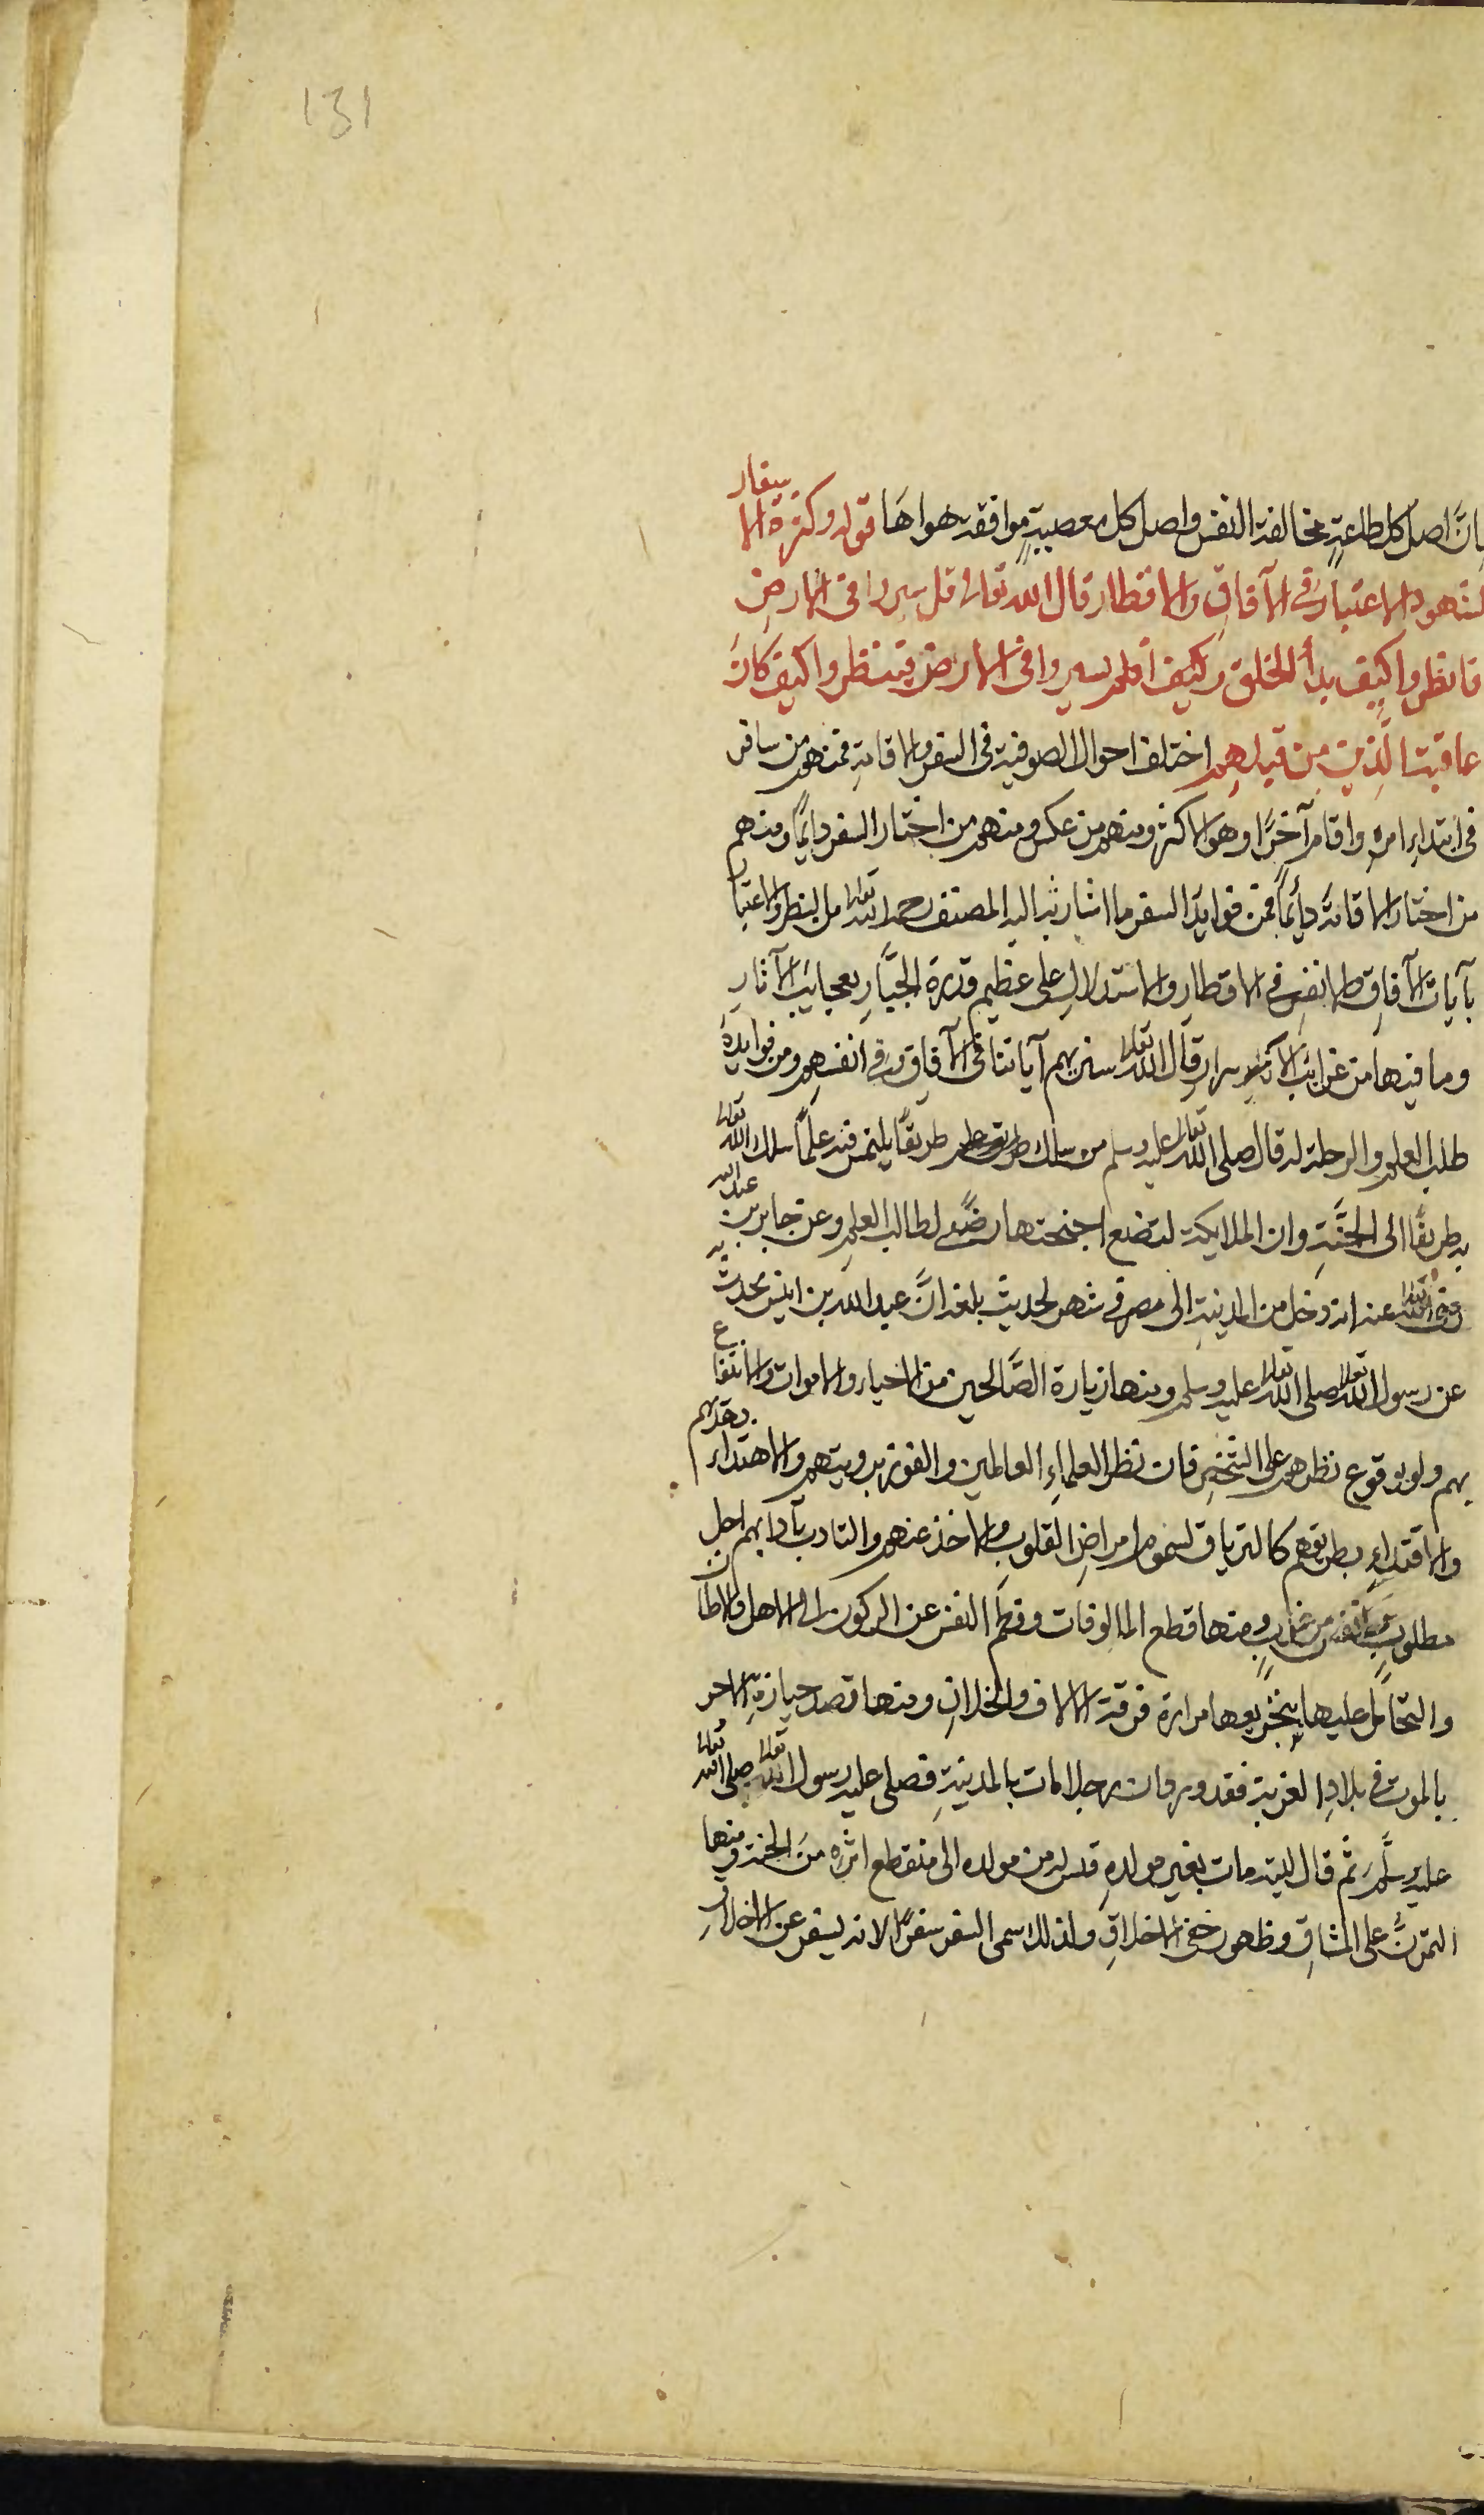 131
بان اصل كل طاعة مخالفة النفس واصل كل معصية موافقة هواها قوله وكثرة الاسفار
لشهود الاعتبار في الآفاق والاقطار قال الله تعالى قل سيروا في الارض
فانظروا كيف بدأ الخلق افلم يسيروا في الارض فينظروا كيف كان
عاقبة الذين من قبلهم اختلف احوال الصوفية في السفر والاقامة فمنهم من سافر
في ابتداء امره واقام آخرا وهو الاكثر ومنهم من عكس ومنهم من اختار السفر دايما ومنهم
من اختار الاقامة دائما فمن فوايد السفر ما اشار اليه المصنف رحمه الله تعالى من النظر والاعتبار
بآيات الآفاق والانفس في الاقطار والاستدلال على عظيم قدرة الجبار بعجايب الآثار
وما فيها من غرائب الاسرار قال الله تعالى سنريهم آياتنا في الآفاق وفي انفسهم ومن فوايده
طلب العلم والرحلة له قال صلى الله تعالى عليه وسلم من سلك طريقا يلتمس فيه علما سلك الله تعالى
به طريقا الى الجنة وان الملايكة لتضع اجنحتها رضى لطالب العلم وعن جابر بن عبد الله
رضى الله تعالى عنه انه دخل من المدينة الى مصر في شهر لحديث بلغه ان عبد الله بن انيس يحدث به
عن رسول الله تعالى صلى الله تعالى عليه وسلم ومنها زيارة الصالحين من الاحياء والاموات والانتفاع
بهم ولو بوقوع نظرهم على الشخص فان نظر العلماء العاملين والفوز برويتهم والاهتداء بهديهم
والاقتداء بطريقهم كالترياق لسموم امراض القلوب والاخذ عنهم والتادب بآدابهم اجل
مطلوب ومنها قطع المالوفات وفطم النفس عن الركون الى الاهل والاوطان
والتحامل عليها بتجريعها مرارة فرقة الالاف والخلان ومنها قصد حيازة الاجر
بالموت في بلاد الغربة فقد ورد ان رجلا مات بالمدينة فصلى عليه رسول الله تعالى صلى الله تعالى
عليه وسلم ثم قال ليته مات بغير مولده قيس له من مولده الى منقطع اثره من الجنة ومنها
التمرن على المشاق وظهور خفي الاخلاق ولذلك سمى السفر سفرا لانه يسفر عن الاخلاق